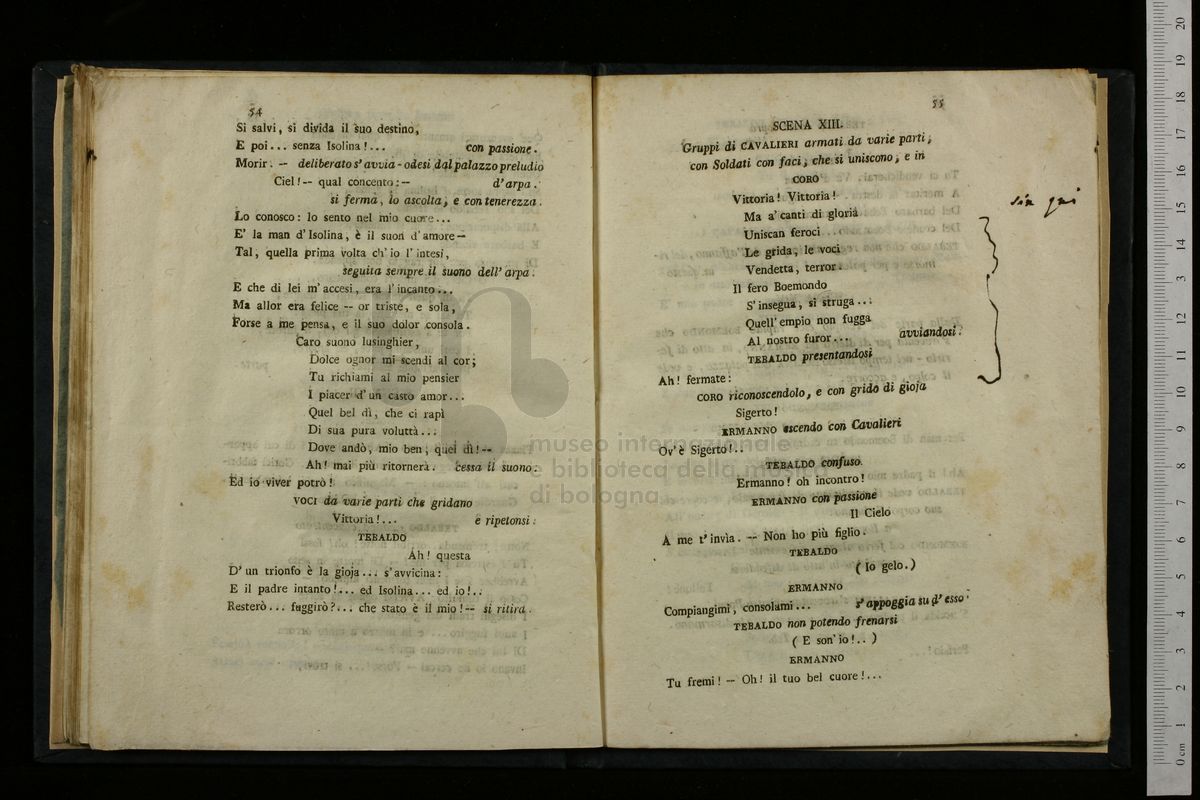 54
Si salvi, si divida il suo destino,
E poi... senza Isolina!... con passione.
Morir. -- deliberato s'avvia - odesi dal palazzo preludio
Ciel! -- qual concento: -- d'arpa.
si ferma, lo ascolta, e con tenerezza.
Lo conosco: lo sento nel mio cuore...
E' la man d'Isolina, è il suon d'amore --
Tal, quella prima volta ch'io l'intesi,
seguita sempre il suono dell'arpa.
E che di lei m'accesi, era l'incanto...
Ma allor era felice -- or triste, e sola,
Forse a me pensa, e il suo dolor consola.
Caro suono lusinghier,
Dolce ognor mi scendi al cor;
Tu richiami al mio pensier
I piacer d'un casto amor...
Quel bel dì, che ci rapì
Di sua pura voluttà...
Dove andò, mio ben, quei dì! --
Ah! mai più ritornerà. cessa il suono.
Ed io viver potrò!
VOCI da varie parti che gridano
Vittoria!... e ripetonsi:
TEBALDO
Ah! questa
D'un trionfo è la gioja... s'avvicina:
E il padre intanto!... ed Isolina... ed io!..
Resterò... fuggirò?... che stato è il mio! -- si ritira.
55
SCENA XIII.
Gruppi di CAVALIERI armati da varie parti,
con Soldati con faci, che si uniscono, e in
CORO
Vittoria! Vittoria!
Ma a' canti di gloria
Uniscan feroci
Le grida, le voci
Vendetta, terror.
Il fero Boemondo
S'insegua, si struga...
Quell'empio non fugga
Al nostro furor... avviandosi.
TEBALDO presentandosi
Ah! fermate:
CORO riconoscendolo, e con grido di gioja
Sigerto!
ERMANNO escendo con Cavalieri
Ov'è Sigerto!..
TEBALDO confuso.
Ermanno! oh incontro!
ERMANNO con passione
Il Cielo
A me t'invia. -- Non ho più figlio.
TEBALDO
(Io gelo.)
ERMANNO
Compiangimi, consolami... s'appoggia su d'esso.
TEBALDO non potendo frenarsi
(E son' io!..)
ERMANNO
Tu fremi! -- Oh! il tuo bel cuore!...
sin qui
museo internazionale
e biblioteca della musica
di bologna
0 cm 1 2 3 4 5 6 7 8 9 10 11 12 13 14 15 16 17 18 19 20